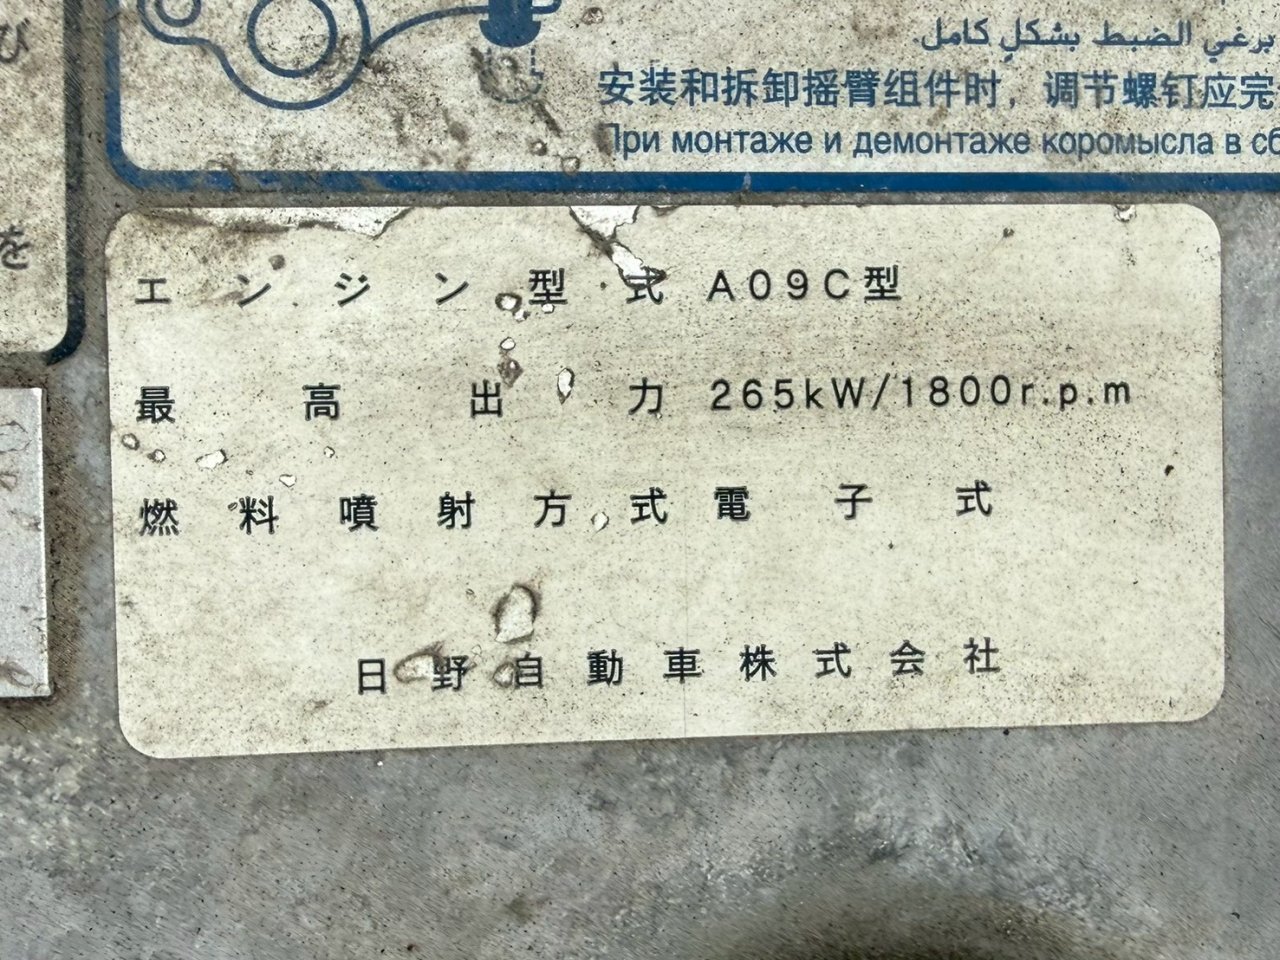 び
を
برغي الضبط بشكل كامل.
安装和拆卸摇臂组件时，调节螺钉应完
При монтаже и демонтаже коромысла в сб
エンジン型式 A09C型
最高出力 265kW/1800r.p.m
燃料噴射方式 電子式
日野自動車株式会社